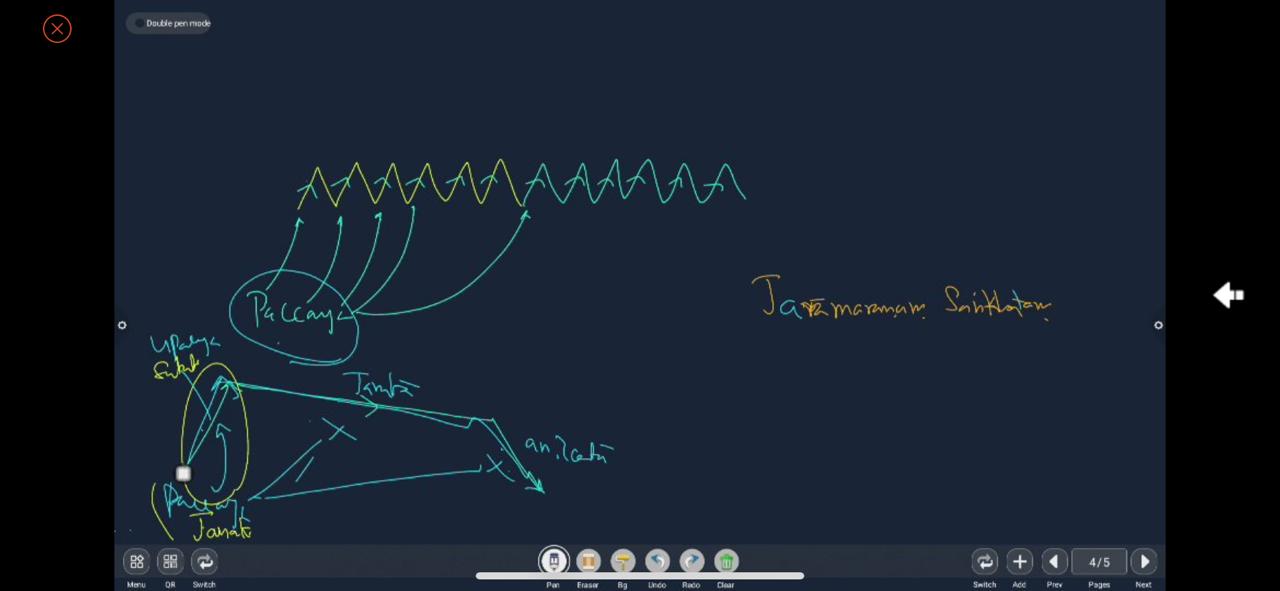 Double pen mode
Paccaya
Jarāmaranam Sankhatam
Upacaya
Jaratā
aniccatā
Paccaya
Janak
Menu
QR
Switch
Pen
Eraser
Bg
Undo
Redo
Clear
Switch
Add
Prev
4/5
Pages
Next